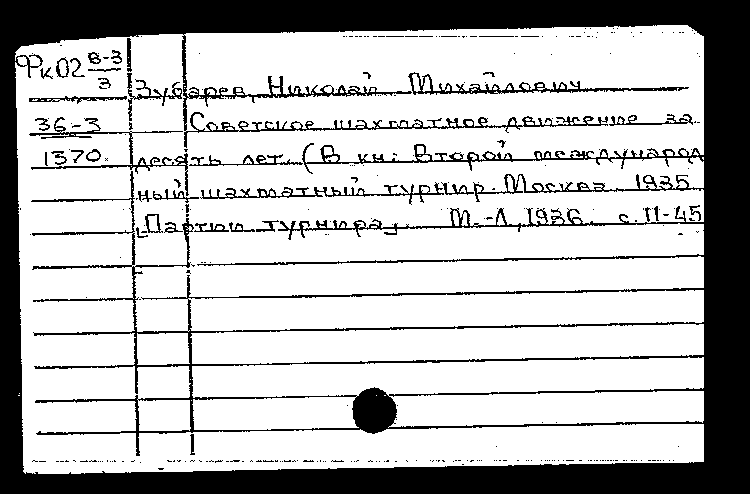 ФкО2 В-3/3
Зубарев, Николай Михайлович
36-3 Советское шахматное движение за
1370. десять лет. (В кн: Второй международ
ный шахматный турнир. Москва 1935
[Партии турнира]. М.-Л, 1936. с. 11-45